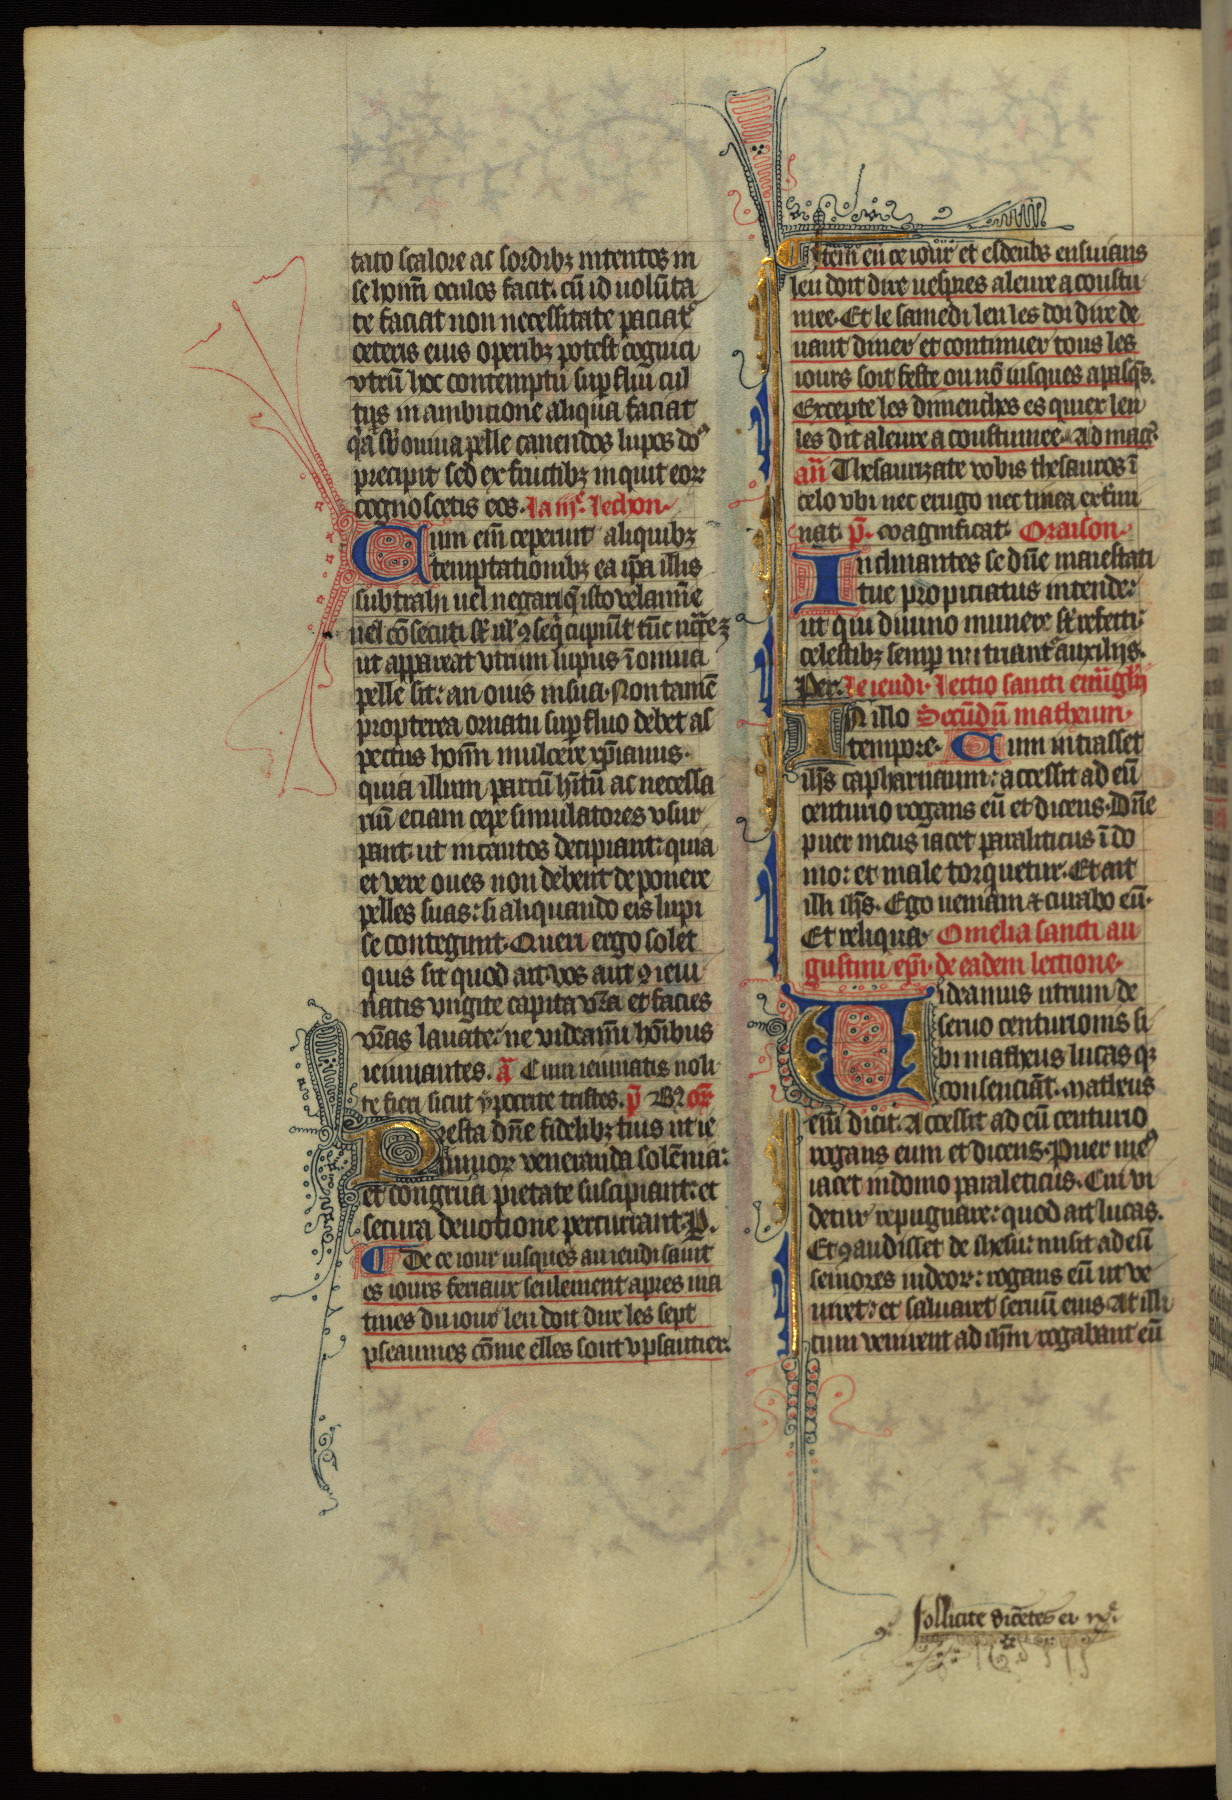 tato scalore ac sordibꝫ intentos in
se hom̄ oculos facit. cū id uolūta
te faciat non necessitate paciat᷑
ceteris eius operibꝫ potest cognici
vtrū hoc contemptu suꝑflui cul
tus in ambicione aliqua faciat
q̄a sub ouina pelle cauendos lupos do᷑
precipit sed ex fructibꝫ inquit eoꝝ
cognoscetis eos. La iijᵉ. lechon.
Cum eni ceperint aliquibꝫ
temptationibꝫ ea ip̄a illis
subtrahi uel negari q̄ isto velam̄e
uel cōsecuti st̄ ul' ꝯseq̄ cupiūt tūc nc̄ce ē
ut appareat vtrum lupus ī ouina
pelle sit: an ouis in sua. Non tamē
propterea ornatu suꝑfluo debet as
pectus homī mulcere xp̄ianus.
quia illum parcū hītū ac necessa
riū eciam cepe simulatores vsur
pant: ut incautos decipiant: quia
et vere oues non debent deponere
pelles suas: si aliquando eis lupi
se contegunt. Queri ergo solet
quis sit quod ait vos aut ꝯ ieiu
natis vngite capita vr̄a et facies
vr̄as lauate: ne videamī hōibus
ieiunantes. ā Cum ieiunatis noli
te fieri sicut ypocrite tristes. p̄ Bn̄ or̄
Presta dn̄e fidelibꝫ tuis ut ie
iunioꝝ veneranda solēnia:
et congrua pietate suscipiant: et
secura deuotione percurrant. P.
De ce iour iusques au ieudi saint
es iours feriaux seulement apres ma
tines du iour len doit dire les sept
pseaumes cōme elles sont v psautier.
Item en ce iour et es deubs ensuians
len doit dire uespres a leure acoustu
mee. Et le samedi len les doi dire de
uant diner et continuer tous les
iours soit feste ou nō iusques a pasq̄s.
Excepte les dimenches es quiex len
les dit a leure acoustumee. Ad mag̃.
an̄ Thesaurizate vobis thesauros ī
celo vbi nec erugo nec tinea extmi
nat. p̄. Magnificat. Oraison.
Inclinantes se dn̄e maiestati
tue propiciatus intende:
ut qui diuino munere st̄ refecti:
celestibꝫ semp nutriant᷑ auxilijs.
Per. Le ieudi. Lectio sancti euuāglij
In illo Secūdū matheum.
tempore. Cum intrasset
ih̄s capharnaum: accessit ad eū
centurio rogans eū et dicens. Dn̄e
puer meus iacet paraliticus ī do
mo: et male torquetur. Et ait
illi ih̄s. Ego ueniam ⁊ curabo eū.
Et reliqua. Omelia sancti au
gustini ep̄i. de eadem lectione.
Uideamus utrum de
seruo centurionis si
bi matheus lucas qꝫ
consenciāt. Matheus
eni dicit. Accessit ad eū centurio
rogans eum et dicens. Puer meꝰ
iacet in domo paraleticus. Cui vi
detur repugnare: quod ait lucas.
Et ꝯ audisset de ihesu: misit ad eū
seniores iudeoꝝ: rogans eū ut ve
niret: et saluaret seruū eius. At illi
cum venirent ad ih̄m rogabant eū
sollicite dicētes ei.